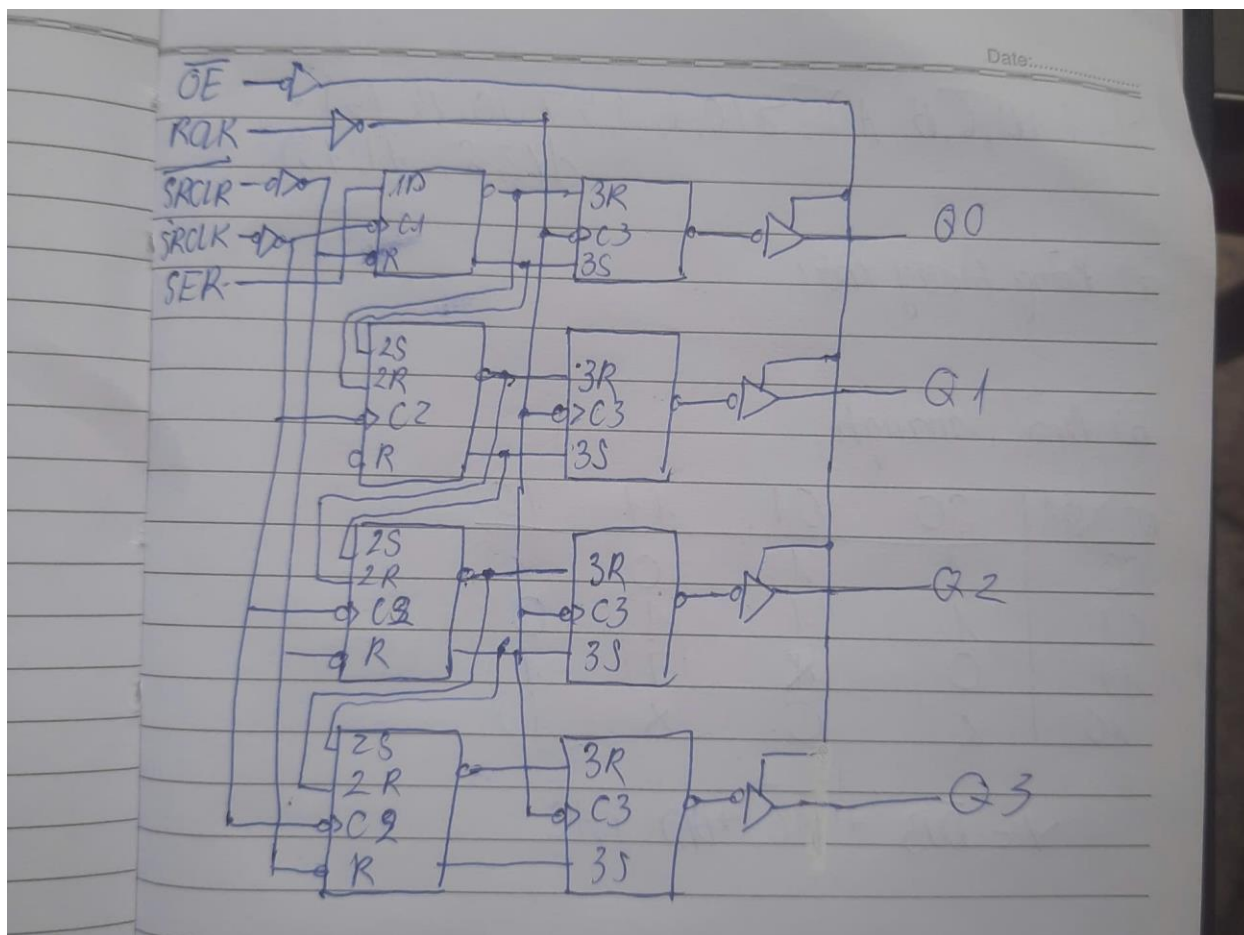 Date:
OE
RCLK
SRCLR
SRCLK
SER
1D
C1
R
3R
C3
3S
Q0
2S
2R
C2
R
3R
C3
3S
Q1
2S
2R
C2
R
3R
C3
3S
Q2
2S
2R
C2
R
3R
C3
3S
Q3